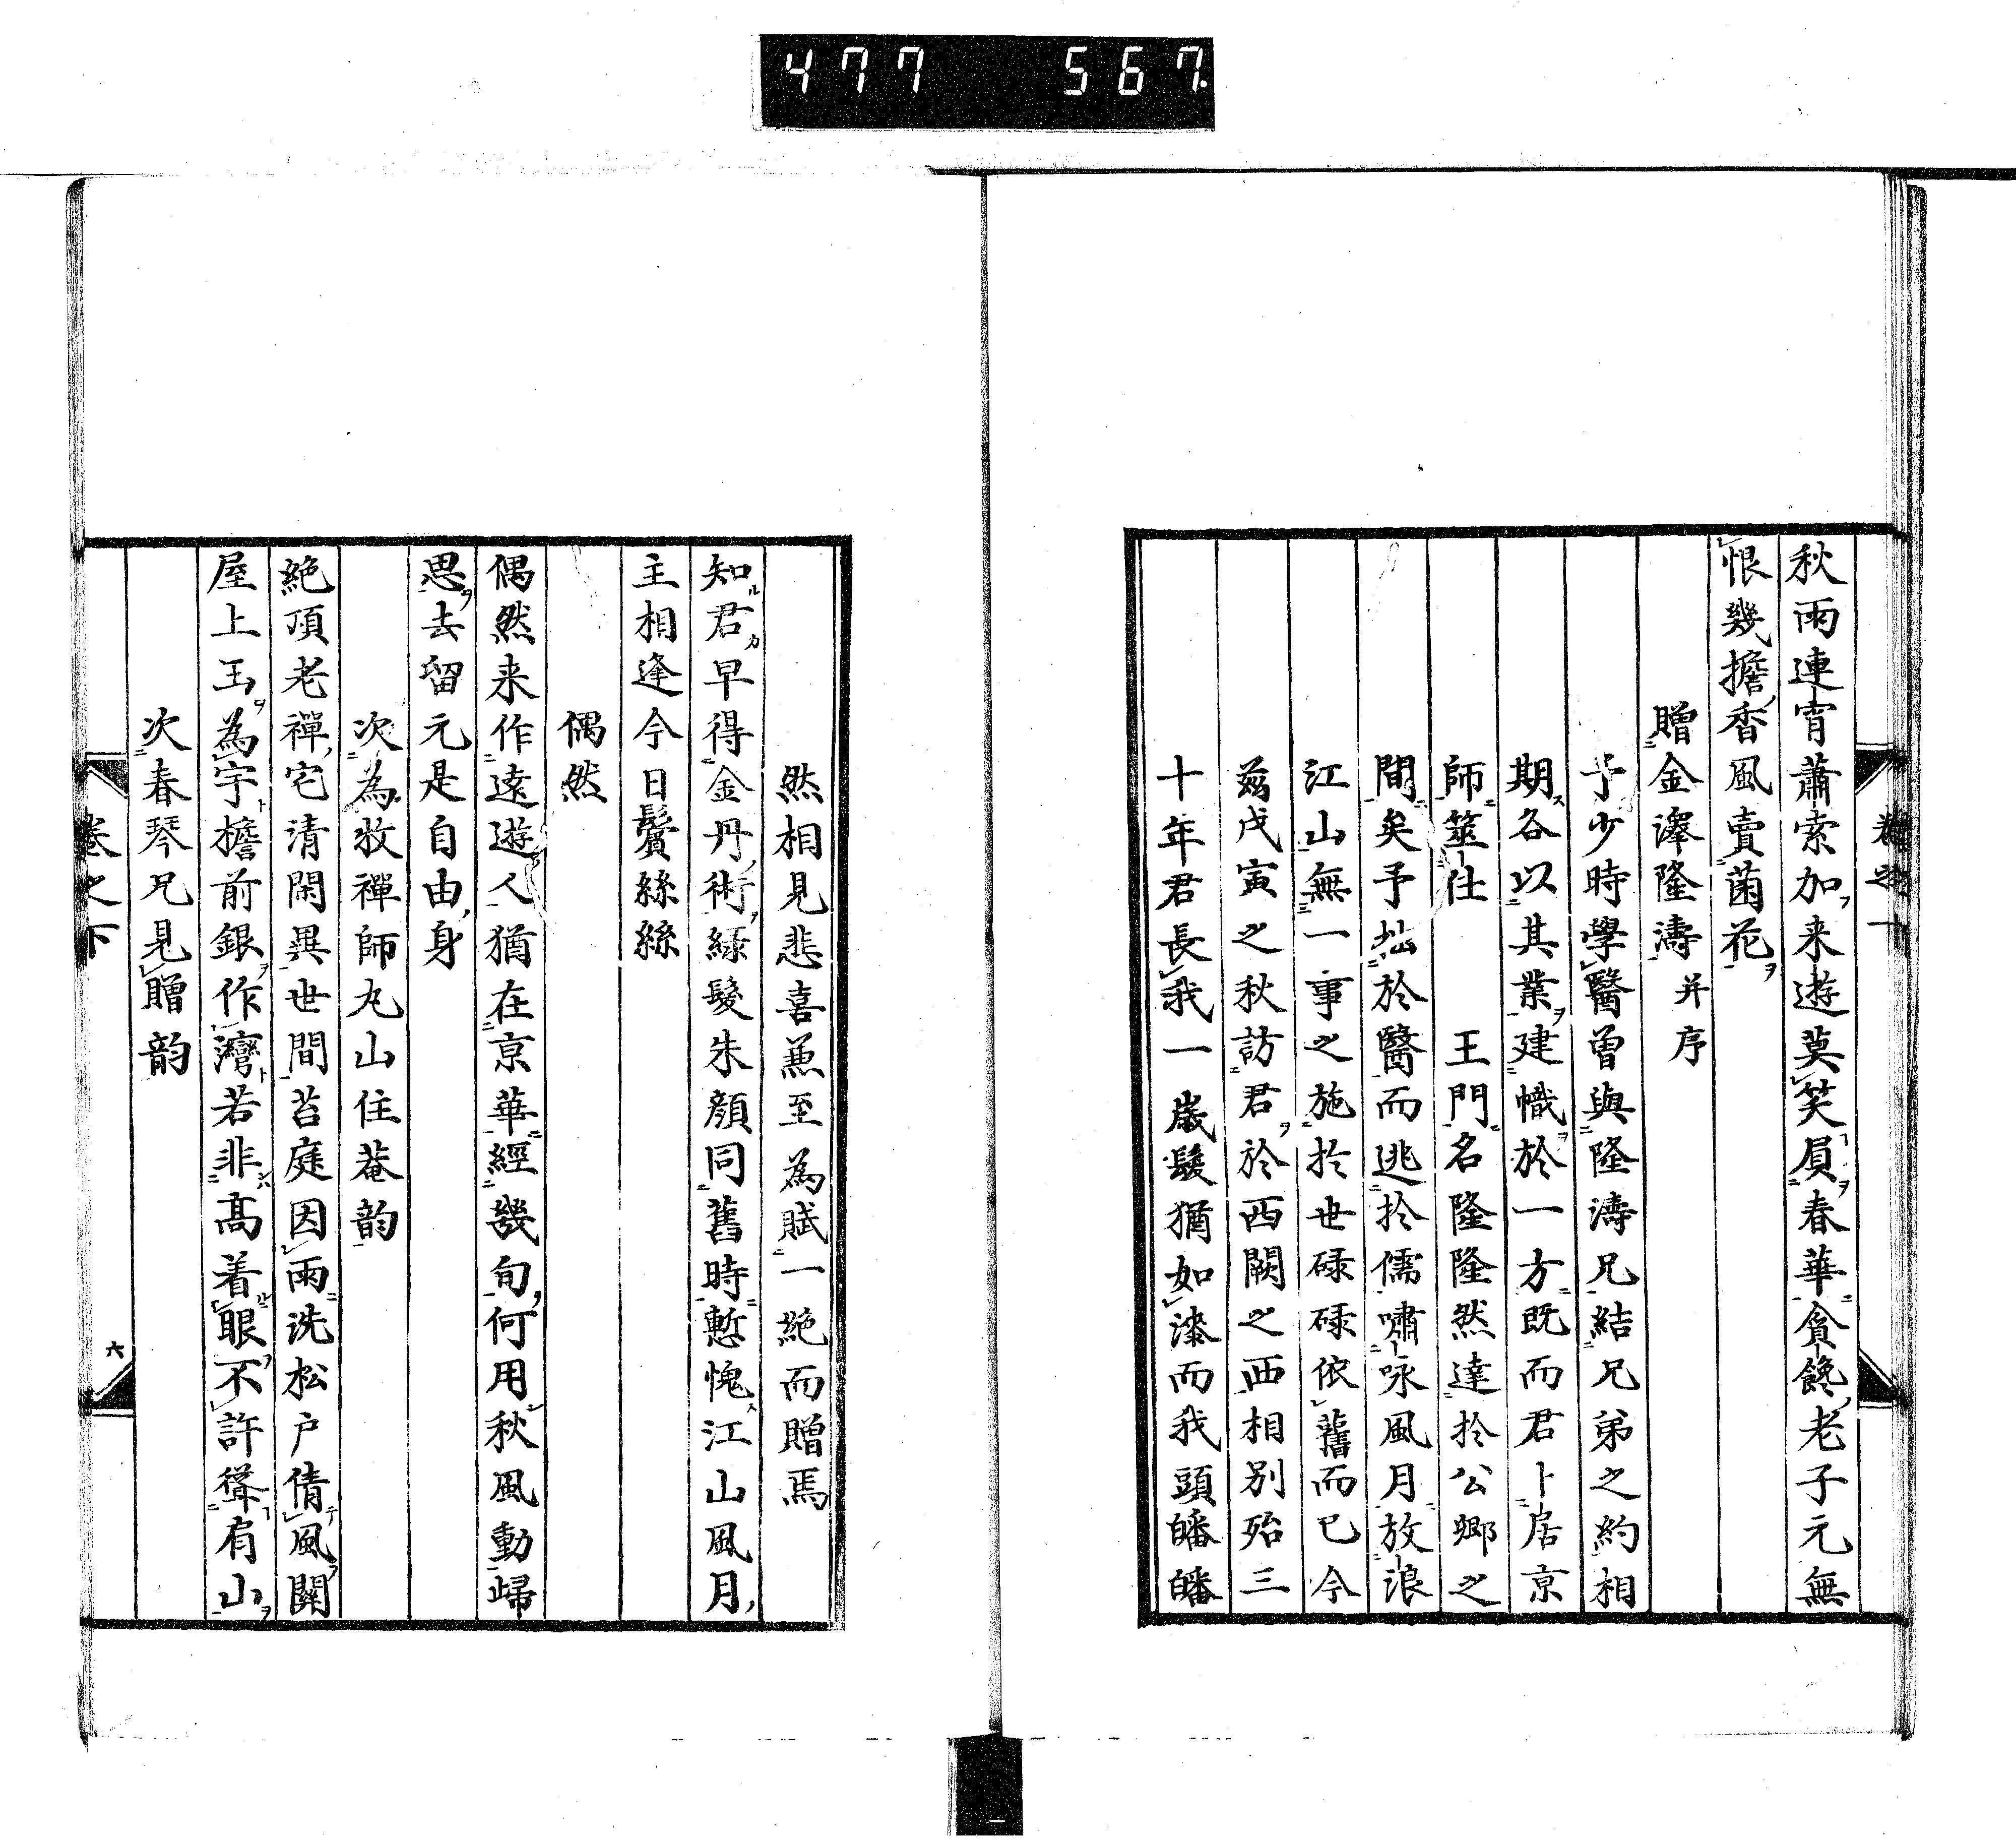 477 567.
秋雨連宵蕭索加来遊莫笑負春華貪饞老子元無
恨幾擔香風賣菌花
贈金澤隆濤并序
予少時學醫曽與隆濤兄結兄弟之約相
期各以其業建幟於一方既而君卜居京
師筮仕 王門名隆隆然達扵公卿之
間矣予拙於醫而逃扵儒嘯咏風月放浪
江山無一事之施扵世碌碌依舊而已今
茲戊寅之秋訪君於西闕之西相別殆三
十年君長我一歳髮猶如漆而我頭皤皤
然相見悲喜兼至為賦一絶而贈焉
知君早得金丹術緑髮朱顔同舊時慙愧江山風月
主相逢今日鬢絲絲
偶然
偶然来作遠遊人猶在京華經幾旬何用秋風動歸
思去留元是自由身
次為牧禪師丸山住菴韵
絶頂老禪宅清閑異世間苔庭因雨洗松戸倩風關
屋上玉為宇檐前銀作灣若非髙着眼不許聳肩山
次春琴兄見贈韵
卷之下
六